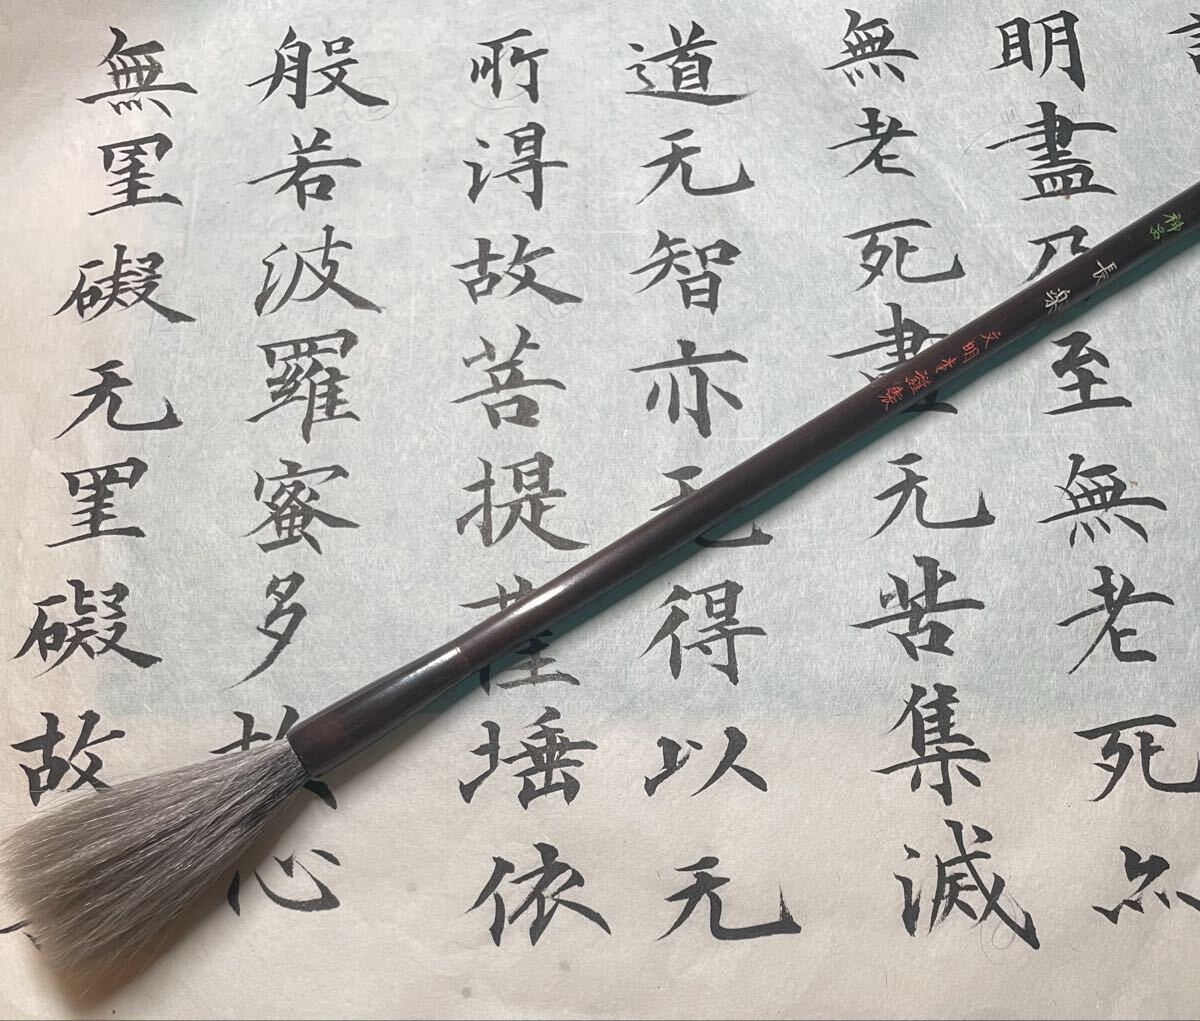 明盡乃至無老死亦
無老死盡无苦集滅
道无智亦无得以无
所得故菩提薩埵依
般若波羅蜜多故心
無罣礙无罣礙故
長楽
文明堂謹製